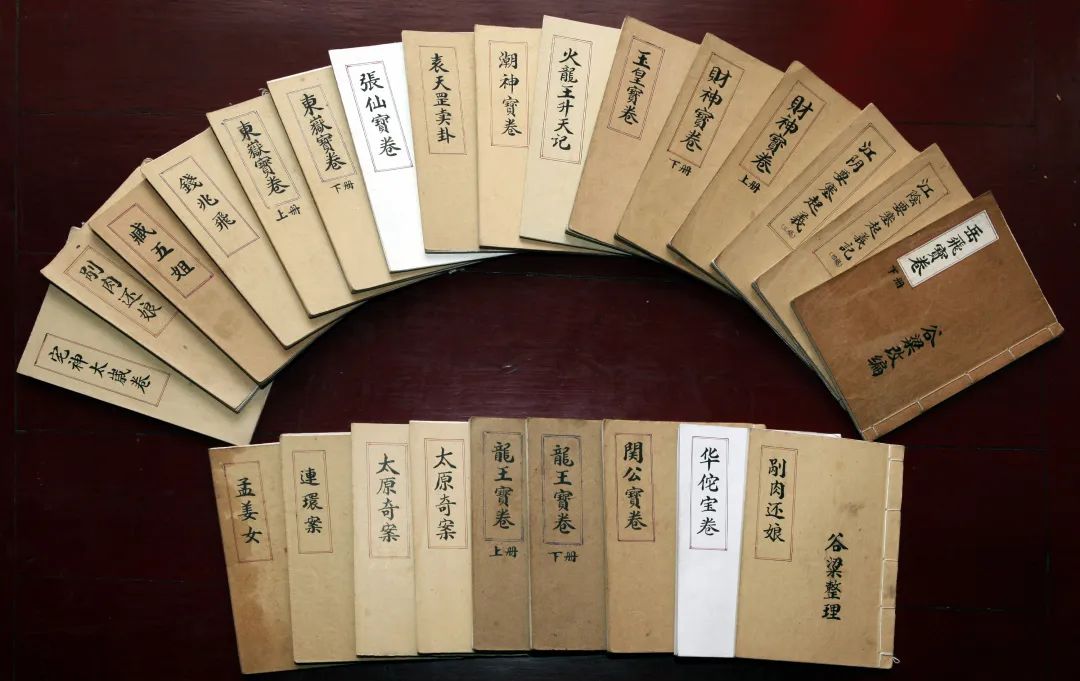 宅神太歲卷
剐肉还娘
臧五姐
錢兆飛
東嶽寶卷
上册
東嶽寶卷
下册
張仙寶卷
袁天罡卖卦
潮神寶卷
火龍王升天记
玉皇寶卷
財神寶卷
下册
財神寶卷
上册
江阴要塞起義
江陰要塞起義記
岳飛寶卷
下册
谷梁改編
孟姜女
連環案
太原奇案
太原奇案
龍王寶卷
上册
龍王寶卷
下册
関公寶卷
华佗宝卷
剐肉还娘
谷梁整理